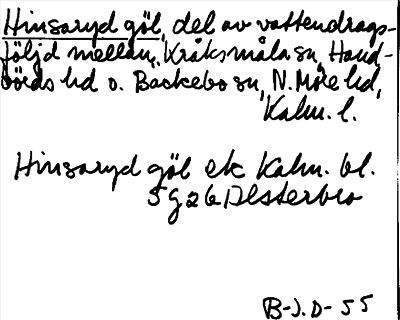 Hinsaryd göl, del av vattendrags-
följd mellan, Kråksmåla sn, Hand-
börds hd o. Bäckebo sn, N. Möre hd,
Kalm. l.
Hinsaryd göl ek Kalm. bl.
5 g 26 Alsterbro
B-J. D-55